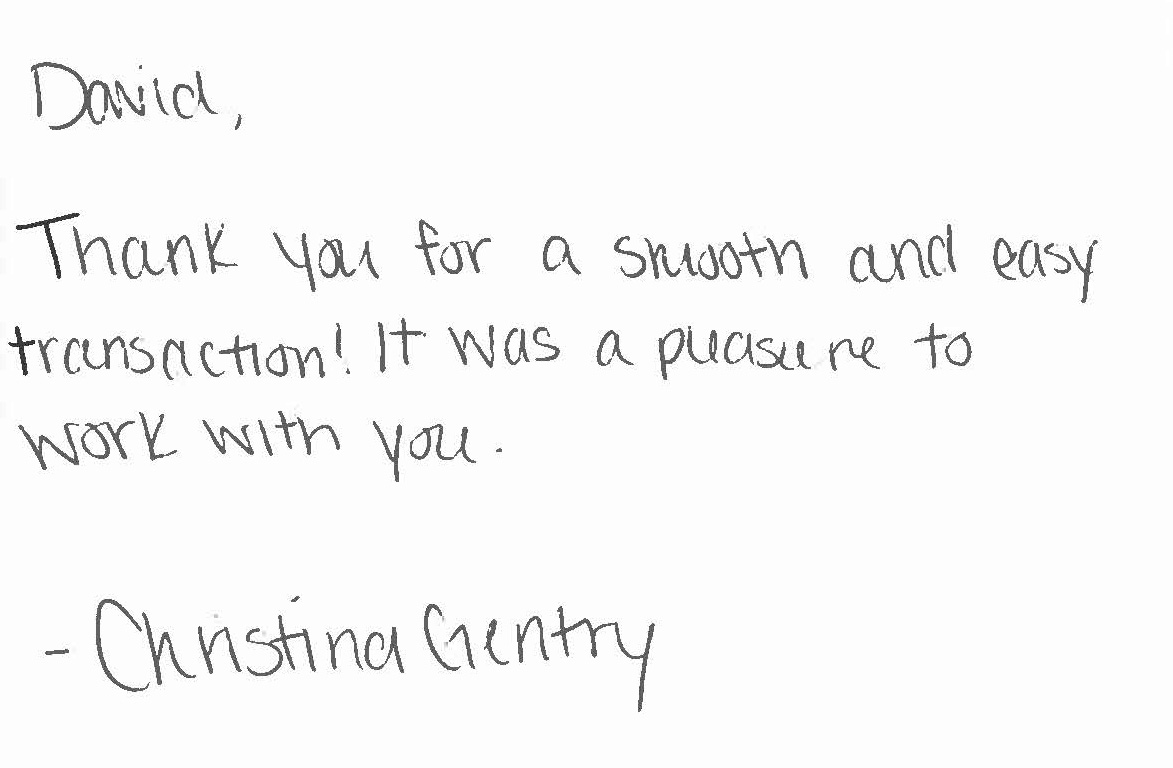 David,
Thank you for a smooth and easy
transaction! It was a pleasure to
work with you.
- Christina Gentry